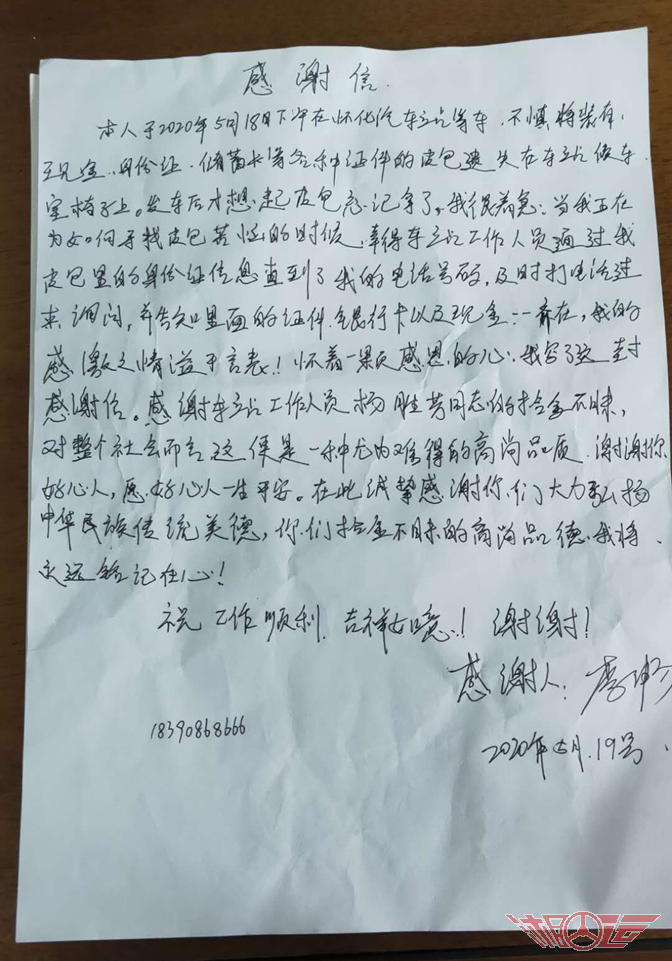 感谢信
本人于2020年5月18日下午在怀化汽车站等车，不慎将装有
现金、身份证、储蓄卡等各种证件的皮包遗失在车站候车
室椅子上。发车后才想起皮包忘记拿了，我很着急；当我正在
为如何寻找皮包苦恼的时候，幸得车站工作人员通过我
皮包里的身份证信息查到了我的电话号码，及时打电话过
来询问，并告知里面的证件、银行卡以及现金一一存在，我的
感激之情溢于言表！怀着一颗感恩的心，我写了这封
感谢信。感谢车站工作人员杨胜芳同志的拾金不昧，
对整个社会而言这便是一种尤为难得的高尚品质，谢谢你
好心人，愿好心人一生平安。在此诚挚感谢你们大力弘扬
中华民族传统美德，你们拾金不昧的高尚品德，我将
永远铭记在心！
祝工作顺利，吉祥如意！谢谢！
感谢人：李
18390868666
2020年5月.19号
湘运